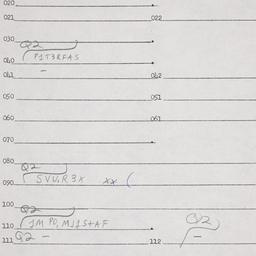 020
021 022
030
Q2
P1T3RFAS
040
041 042
050 051
060 061
070
080
Q2
SVU,R3X XX (
090
100
Q2 Q2
1M PD, MJ1S+AF
110
111 Q2 - 112 -